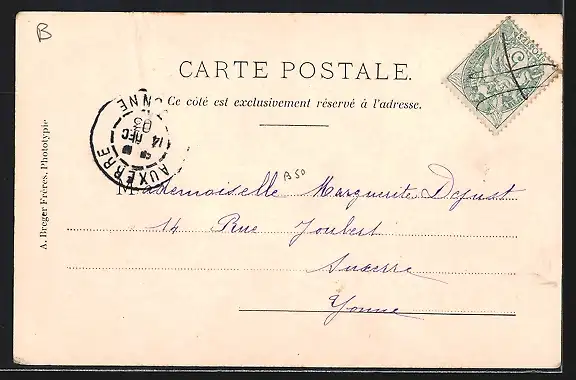 B
CARTE POSTALE.
Ce côté est exclusivement réservé à l'adresse.
AUXERRE
YONNE
14 DEC
03
B50
Mademoiselle Marguerite Dejust
14 Rue Joubert
Auxerre
Yonne
A. Breger Frères, Phototypie